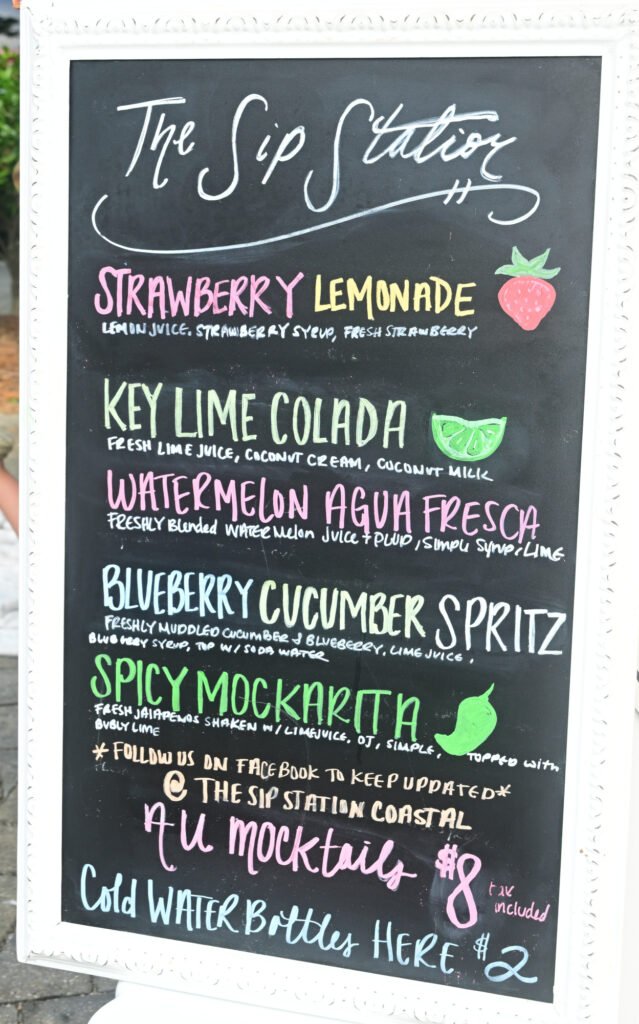 The Sip Station
STRAWBERRY LEMONADE
LEMON JUICE, STRAWBERRY SYRUP, FRESH STRAWBERRY
KEY LIME COLADA
FRESH LIME JUICE, COCONUT CREAM, COCONUT MILK
WATERMELON AGUA FRESCA
FRESHLY Blended WATERMelon JUICE + PULP, SIMPLE SYRUP, LIME
BLUEBERRY CUCUMBER SPRITZ
FRESHLY MUDDLED CUCUMBER & BLUEBERRY, LIME JUICE,
BLUEBERRY SYRUP, TOP W/ SODA WATER
SPICY MOCKARITA
FRESH JALAPENOS SHAKEN W/ LIME JUICE, OJ, SIMPLE, TOPPED WITH
BUBLY LIME
*FOLLOW US ON FACEBOOK TO KEEP UPDATED*
@ THE SIP STATION COASTAL
All Mocktails $8 tax
included
Cold WATER Bottles HERE $2